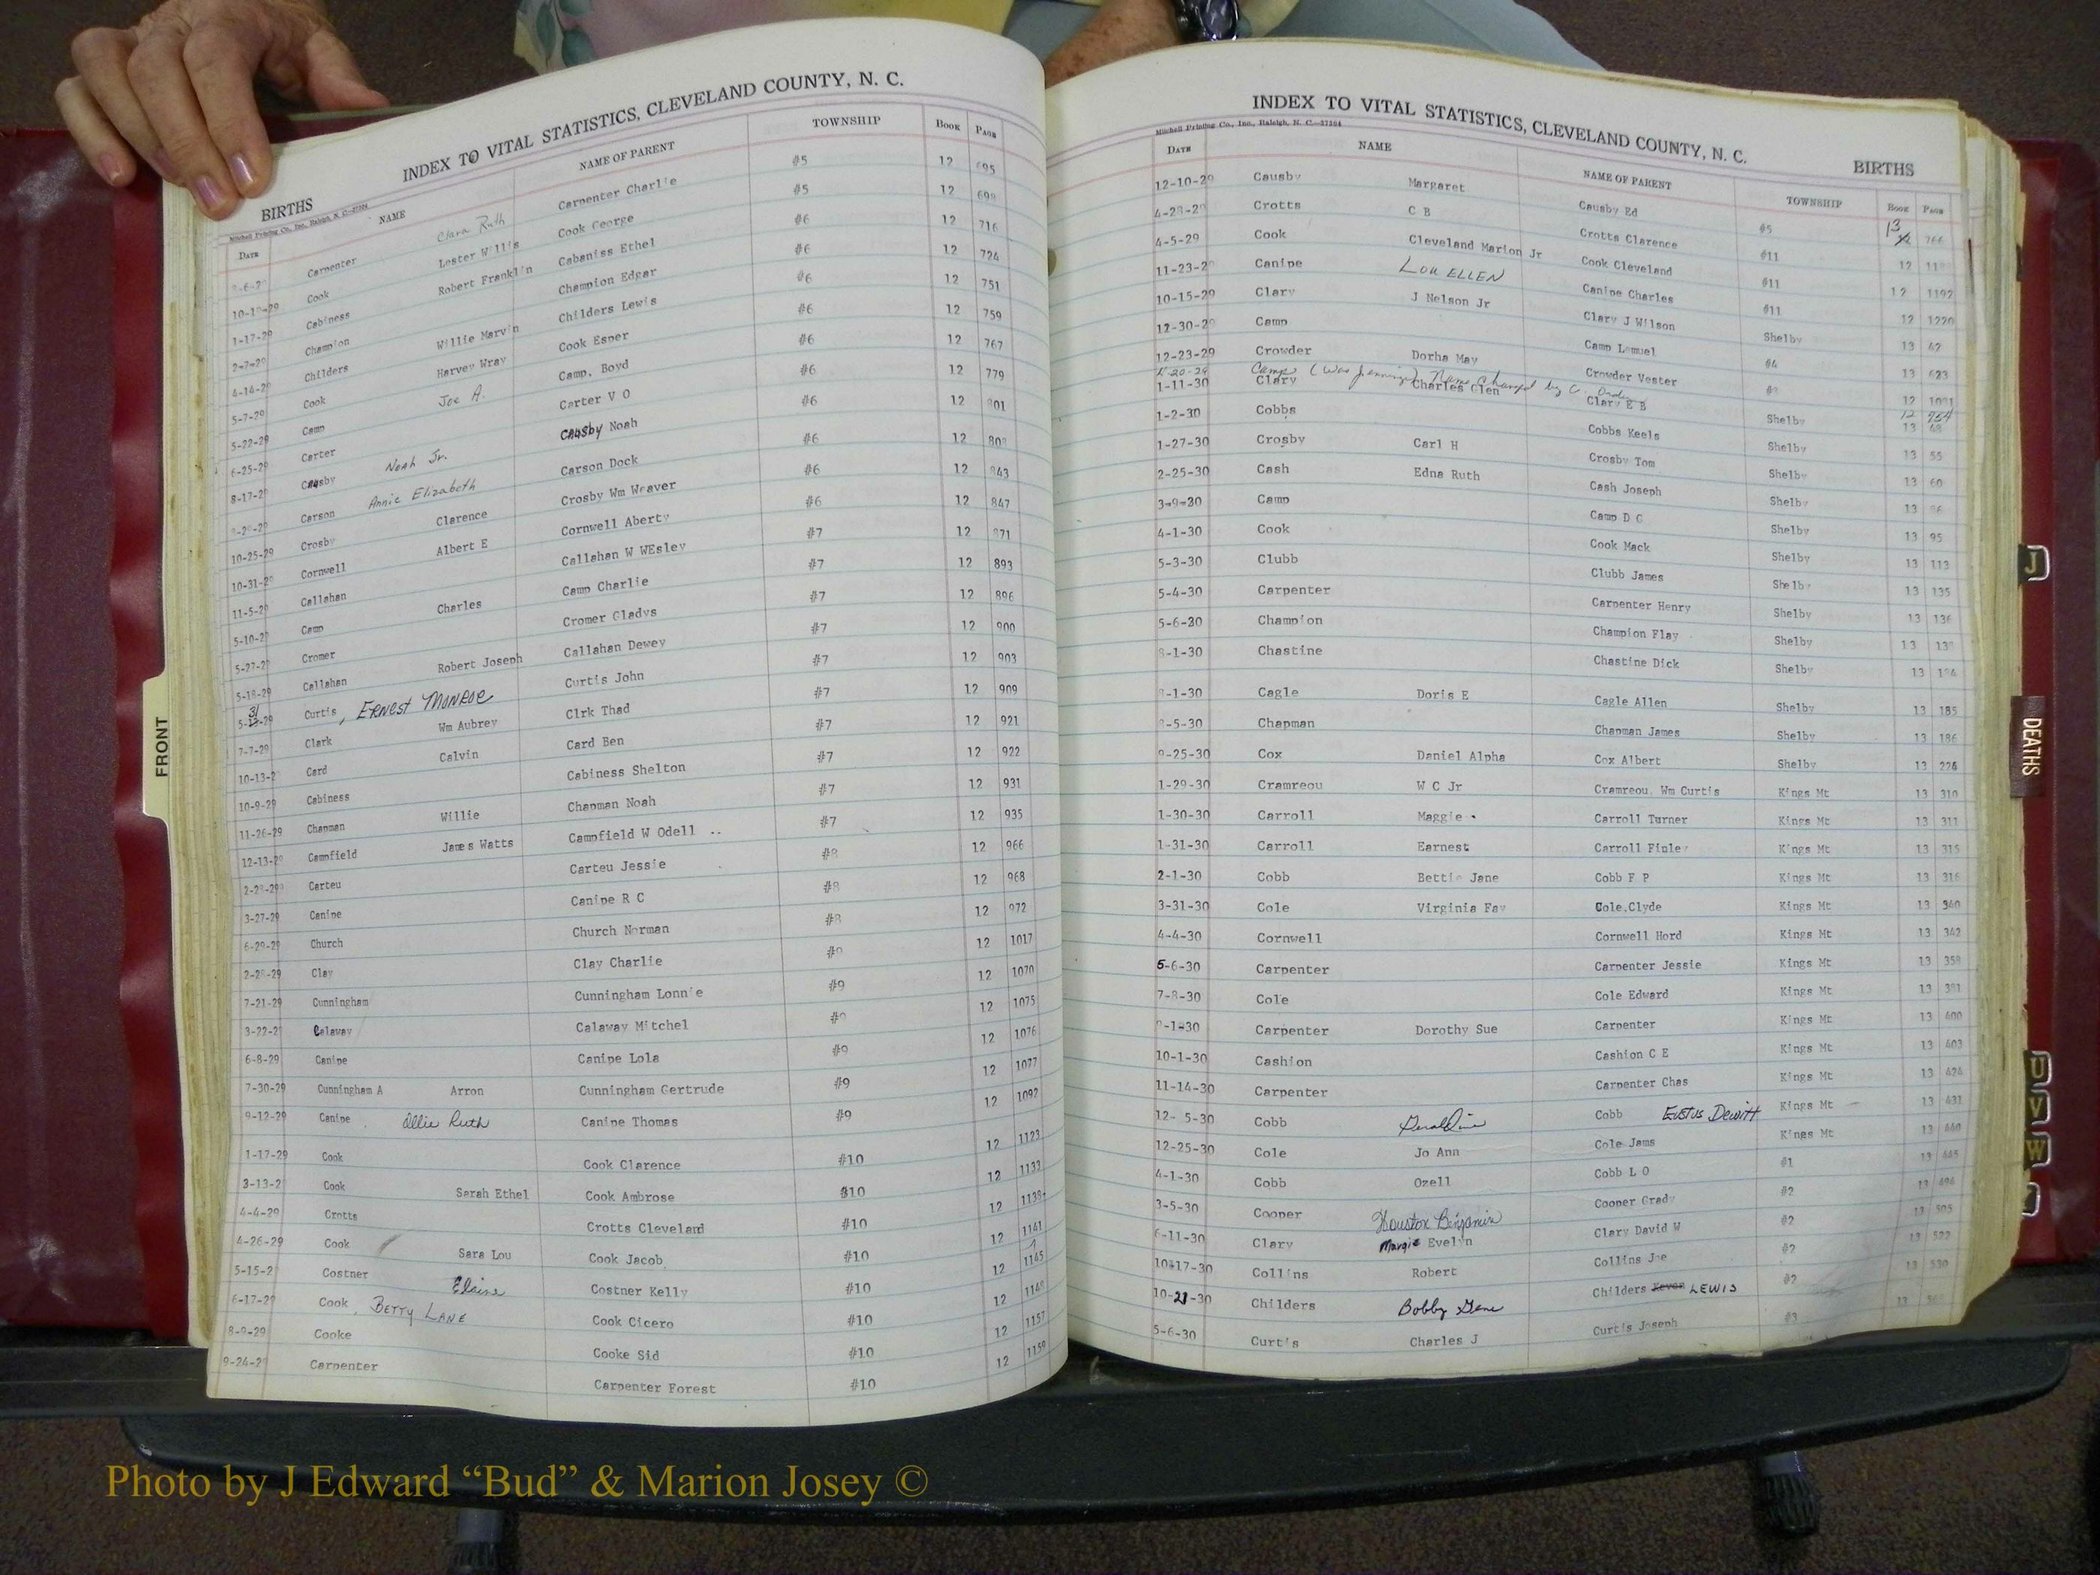 INDEX TO VITAL STATISTICS, CLEVELAND COUNTY, N. C.
BIRTHS
Mitchell Printing Co., Inc., Raleigh, N. C.—27394
DATE NAME NAME OF PARENT TOWNSHIP BOOK PAGE
Carpenter Clara Ruth Carpenter Charlie #5 12 695
10-10-29 Cook Lester Willis Cook George #5 12 699
1-17-29 Cabiness Robert Franklin Cabaniss Ethel #6 12 716
2-7-29 Champion Champion Edgar #6 12 724
4-14-29 Childers Willie Marvin Childers Lewis #6 12 751
5-7-29 Cook Harvey Wray Cook Esper #6 12 759
5-22-29 Camp Joe A. Camp, Boyd #6 12 767
6-25-29 Carter Carter V O #6 12 779
8-17-29 Causby Noah Jr. Causby Noah #6 12 801
Carson Annie Elizabeth Carson Dock #6 12
10-25-29 Crosby Clarence Crosby Wm Weaver #6 12 843
10-31-29 Cornwell Albert E Cornwell Aberty #6 12 847
11-5-29 Callahan Callahan W WEsley #7 12 871
5-10-29 Camp Charles Camp Charlie #7 12 893
5-27-29 Cromer Cromer Gladys #7 12 896
5-18-29 Callahan Robert Joseph Callahan Dewey #7 12 900
5-31-29 Curtis, ERNEST MONROE Curtis John #7 12 903
7-7-29 Clark Wm Aubrey Clrk Thad #7 12 909
10-13-2 Card Calvin Card Ben #7 12 921
10-9-29 Cabiness Cabiness Shelton #7 12 922
11-26-29 Chapman Willie Chapman Noah #7 12 931
12-13-29 Campfield James Watts Campfield W Odell .. #7 12 935
Carteu Carteu Jessie #8 12 966
3-27-29 Canipe Canipe R C #8 12 968
6-29-29 Church Church Norman #8 12 972
2-28-29 Clay Clay Charlie #9 12 1017
7-21-29 Cunningham Cunningham Lonnie #9 12 1070
3-22-2 Calaway Calaway Mitchel #9 12 1075
6-8-29 Canipe Canipe Lola #9 12 1076
7-30-29 Cunningham A Arron Cunningham Gertrude #9 12 1077
9-12-29 Canipe Ollie Ruth Canipe Thomas #9 12 1092
1-17-29 Cook Cook Clarence #10 12 1123
3-13-2 Cook Sarah Ethel Cook Ambrose #10 12 1133
4-4-29 Crotts Crotts Cleveland #10 12 1139
4-26-29 Cook Sara Lou Cook Jacob #10 12 1141
5-15-2 Costner Elaine Costner Kelly #10 12 1145
6-17-29 Cook, BETTY LANE Cook Cicero #10 12 1149
8-9-29 Cooke Cooke Sid #10 12 1157
9-24-2 Carpenter Carpenter Forest #10 12 1159
INDEX TO VITAL STATISTICS, CLEVELAND COUNTY, N. C.
Mitchell Printing Co., Inc., Raleigh, N. C.—27394
BIRTHS
DATE NAME NAME OF PARENT TOWNSHIP BOOK PAGE
12-10-29 Causby Margaret Causby Ed #5 13 766
4-28-29 Crotts C B Crotts Clarence #11 12
4-5-29 Cook Cleveland Marion Jr Cook Cleveland #11 12 1192
11-23-2 Canipe LOU ELLEN Canipe Charles #11 12 1220
10-15-29 Clary J Nelson Jr Clary J Wilson Shelby 13 42
12-30-29 Camp Camp Lemuel #4 13 623
12-23-29 Crowder Dorha May Crowder Vester 12
Camp (Was Jennings) Name changed by C. Order 12 954
1-11-30 Clary Charles Glen Clary E B Shelby 13 48
1-2-30 Cobbs Cobbs Keels Shelby 13 55
1-27-30 Crosby Carl H Crosby Tom Shelby 13 60
2-25-30 Cash Edna Ruth Cash Joseph Shelby 13
3-9-30 Camp Camp D C Shelby 13 95
4-1-30 Cook Cook Mack Shelby 13 113
5-3-30 Clubb Clubb James Shelby 13 135
5-4-30 Carpenter Carpenter Henry Shelby 13 136
5-6-30 Champion Champion Flay Shelby 13
8-1-30 Chastine Chastine Dick Shelby 13 184
Cagle Doris E Cagle Allen Shelby 13 185
Chapman Chapman James Shelby 13 186
9-25-30 Cox Daniel Alpha Cox Albert Shelby 13 226
1-29-30 Cramreou W C Jr Cramreou, Wm Curtis Kings Mt 13 310
1-30-30 Carroll Maggie Carroll Turner Kings Mt 13 311
1-31-30 Carroll Earnest Carroll Finley Kings Mt 13 315
2-1-30 Cobb Bettie Jane Cobb F P Kings Mt 13 316
3-31-30 Cole Virginia Fay Cole,Clyde Kings Mt 13 340
4-4-30 Cornwell Cornwell Hord Kings Mt 13 342
5-6-30 Carpenter Carpenter Jessie Kings Mt 13 358
7-8-30 Cole Cole Edward Kings Mt 13 381
9-1-30 Carpenter Dorothy Sue Carpenter Kings Mt 13 400
10-1-30 Cashion Cashion C E Kings Mt 13 403
11-14-30 Carpenter Carpenter Chas Kings Mt 13 424
12- 5-30 Cobb Geraldine Cobb EUSTUS DEWITT Kings Mt 13 431
12-25-30 Cole Jo Ann Cole Jams Kings Mt 13 440
4-1-30 Cobb Ozell Cobb L O #1 13 445
3-5-30 Cooper Houston Benjamin Cooper Grady #2 13 494
6-11-30 Clary Margie Evelyn Clary David W #2 13 505
10-17-30 Collins Robert Collins Joe #2 13 522
10-21-30 Childers Bobby Gene Childers LEWIS #2 13 530
5-6-30 Curtis Charles J Curtis Joseph #3 13
FRONT
J
DEATHS
U
V
W
Photo by J Edward “Bud” & Marion Josey ©